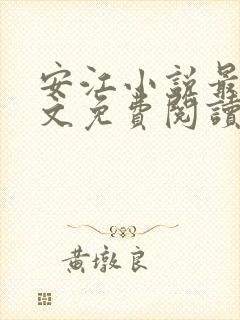 安江小説最
文免費閱讀
黃墩良